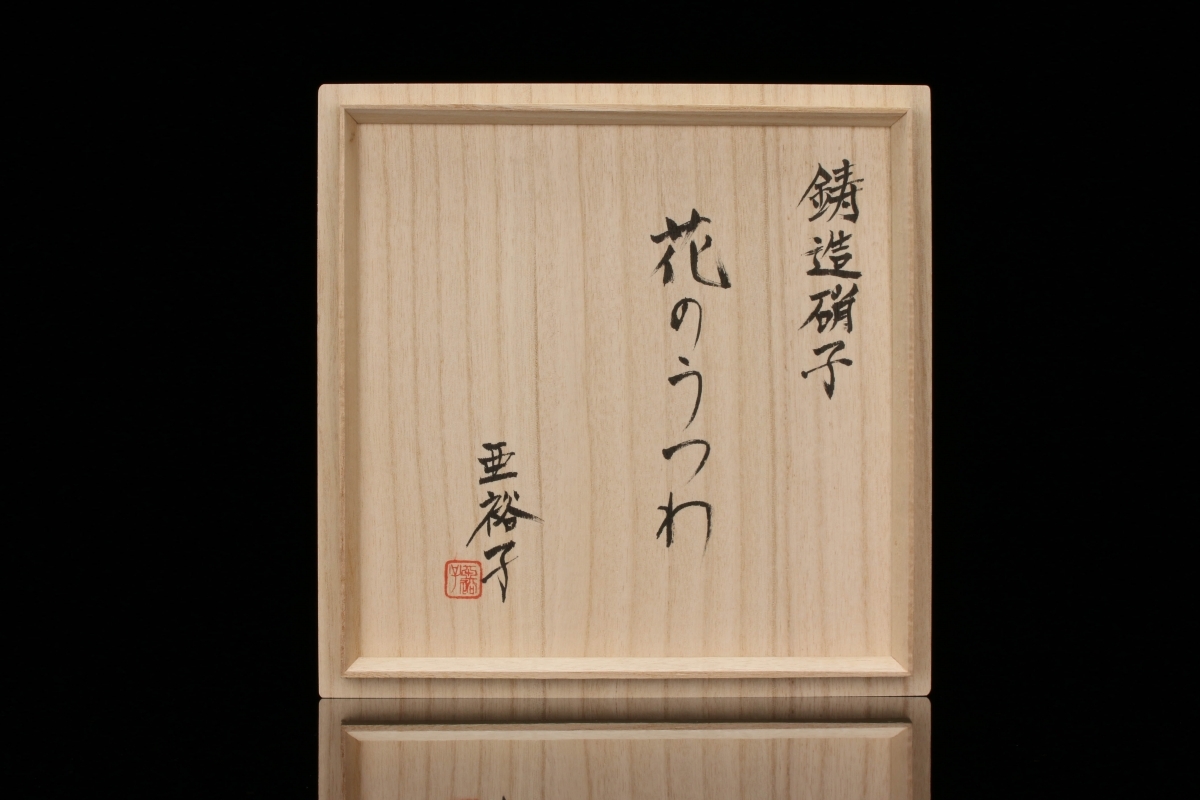 鋳造硝子
花のうつわ
亜裕子